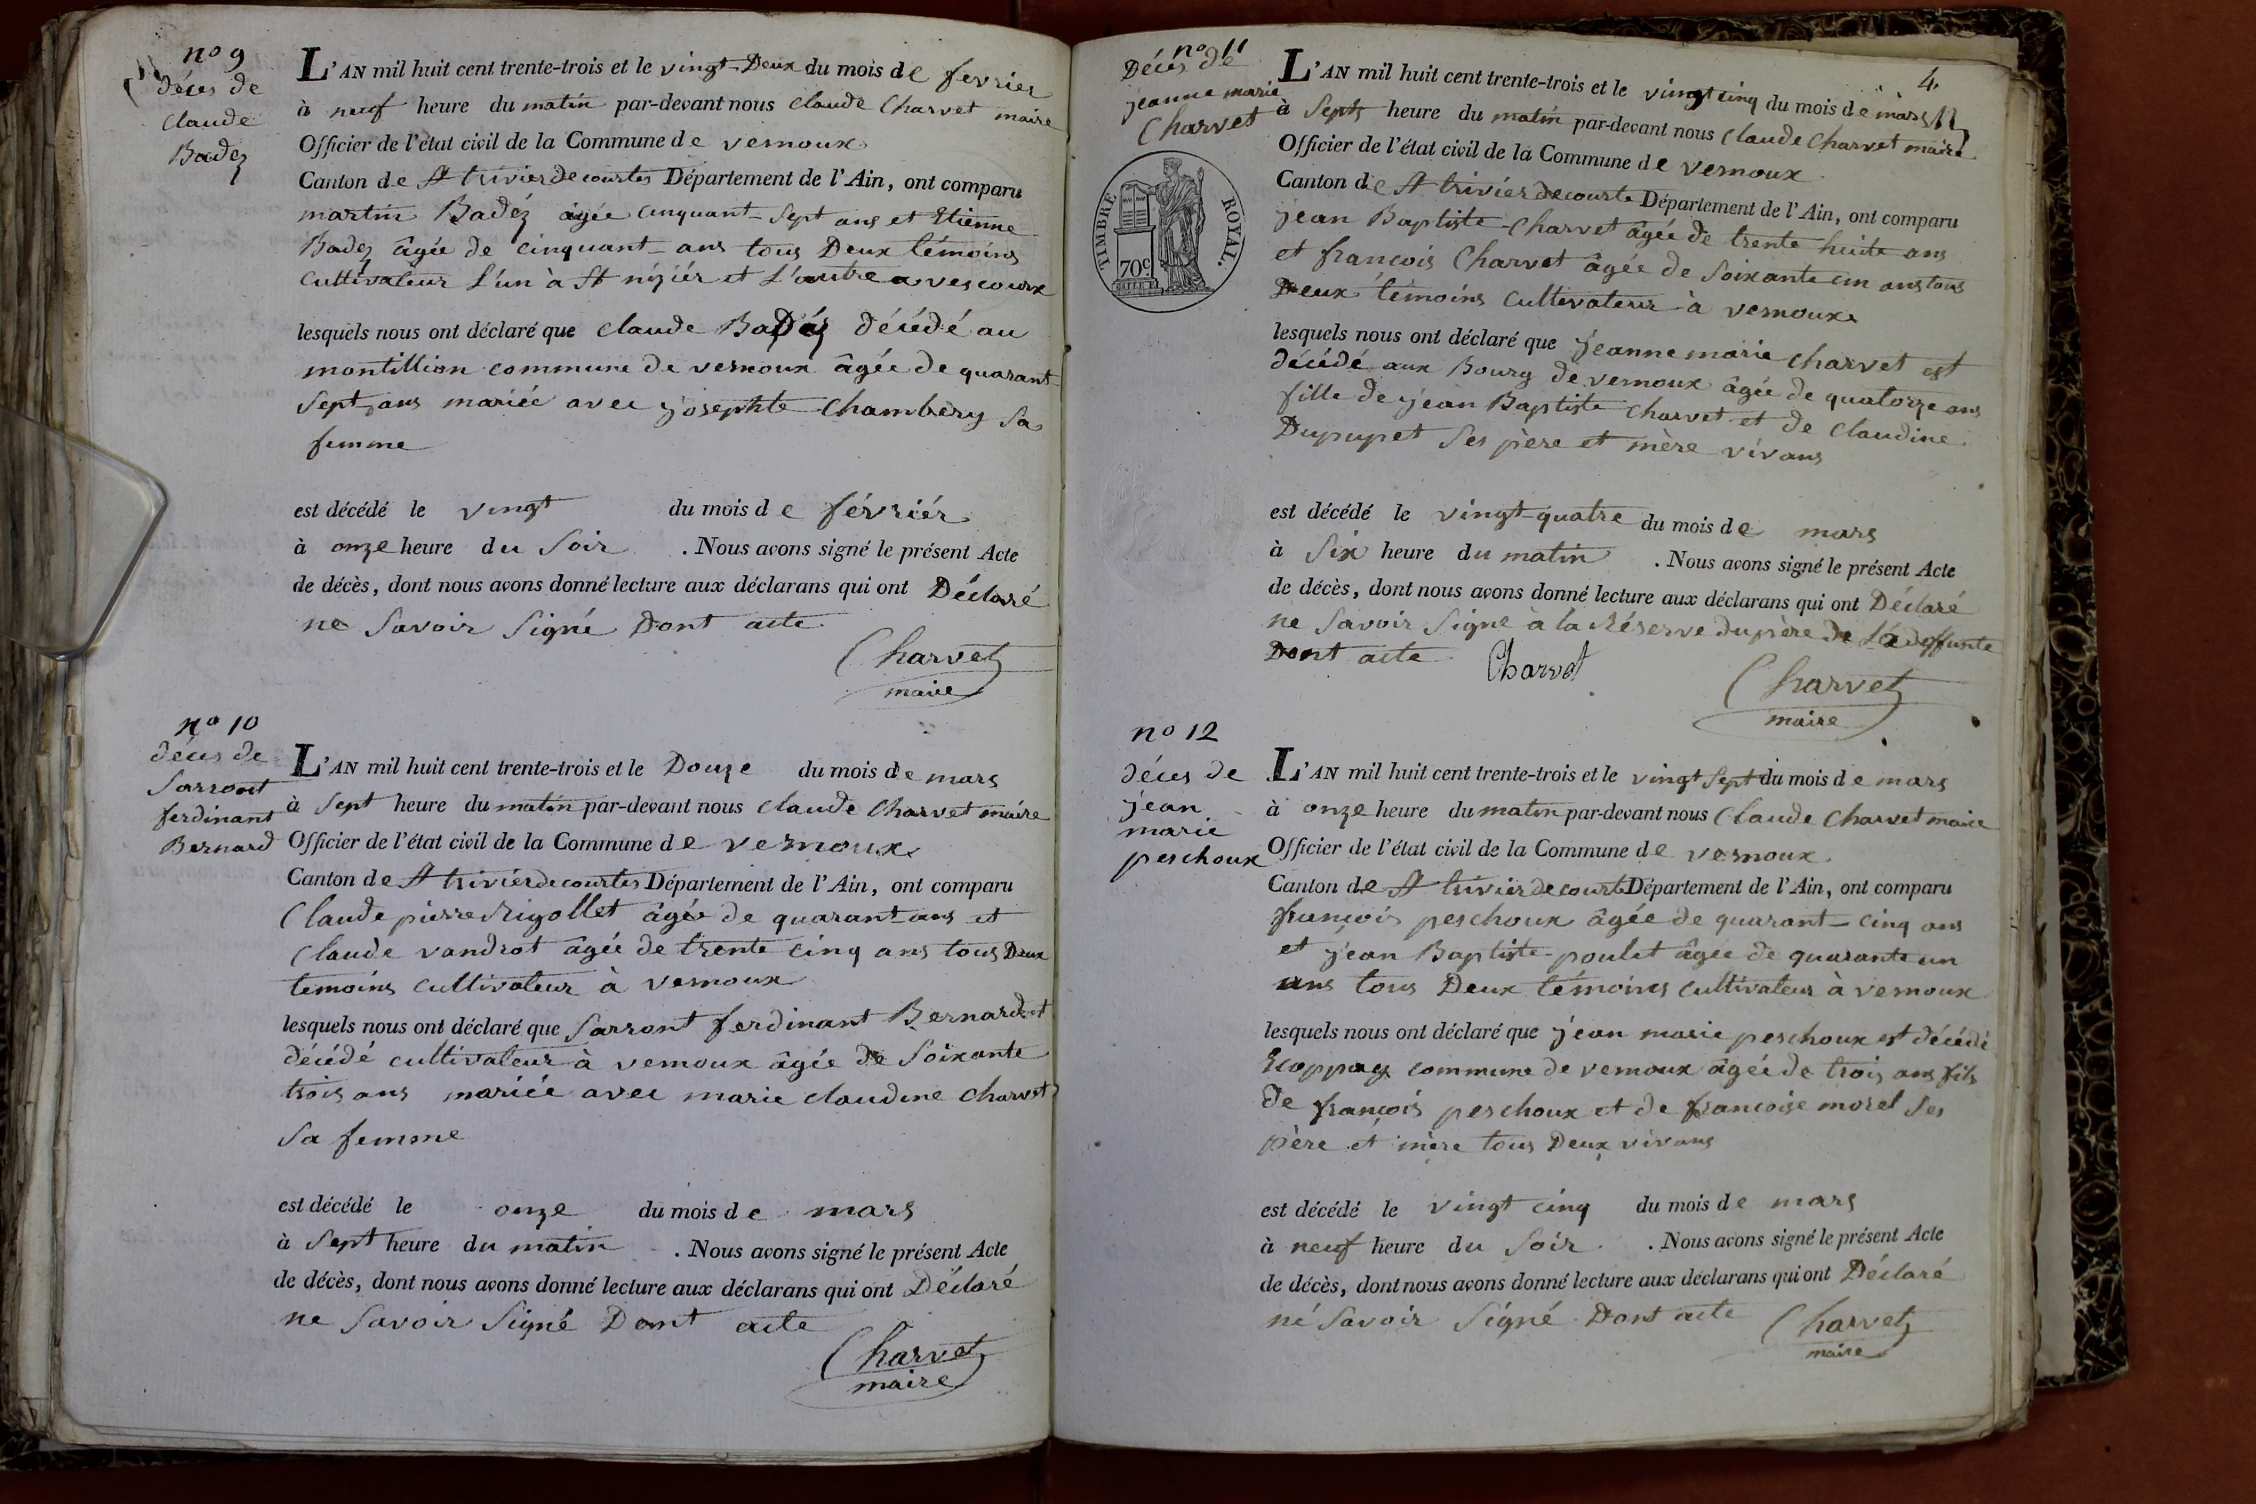 n° 9
décès de
Claude
Badez
L'AN mil huit cent trente-trois et le vingt-Deux du mois de fevrier
à neuf heure du matin par-devant nous Claude Charvet maire
Officier de l'état civil de la Commune de vernoux
Canton de St triviérdecourtes Département de l'Ain, ont comparu
martin Badéz âgée cinquant-Sept ans et Etienne
Badez âgée de cinquant-ans tous Deux témoins
Cultivateur L'un à St niziér et L'autre a vescourx
lesquels nous ont déclaré que Claude Badéz décédé au
montillion commune de vernoux âgée de quarant-
Sept ans mariée avec josephte Chambéry Sa
femme
est décédé le vingt du mois de févriér
à onze heure du Soir . Nous avons signé le présent Acte
de décès, dont nous avons donné lecture aux déclarans qui ont Déclaré
ne Savoir Signé Dont acte
Charvet
maire
n° 10
décès de
Sarront
ferdinant
Bernard
L'AN mil huit cent trente-trois et le Douze du mois de mars
à Sept heure du matin par-devant nous Claude Charvet maire
Officier de l'état civil de la Commune de vernoux
Canton de St triviérdecourtes Département de l'Ain, ont comparu
Claude pierre rigollet âgée de quarant ans et
Claude vandrot âgée de trente cinq ans tous Deux
temoins cultivateur à vernoux
lesquels nous ont déclaré que Sarront ferdinant Bernard et
décédé cultivateur à vernoux âgée de Soixante
trois ans mariée avec marie claudine Charvet
Sa femme
est décédé le onze du mois de mars
à Sept heure du matin . Nous avons signé le présent Acte
de décès, dont nous avons donné lecture aux déclarans qui ont Déclaré
ne Savoir Signé Dont acte
Charvet
maire
4.
n° 11
Décès de
jeanne marie
Charvet
TIMBRE ROYAL.
70c
L'AN mil huit cent trente-trois et le vingt cinq du mois de mars
à Sept heure du matin par-devant nous Claude Charvet maire
Officier de l'état civil de la Commune de vernoux
Canton de St triviér decourte Département de l'Ain, ont comparu
jean Baptiste Charvet âgée de trente huite ans
et francois Charvet âgée de Soixante un ans tous
Deux témoins Cultivateur à vernoux
lesquels nous ont déclaré que jeanne marie Charvet est
décédé aux Bourg de vernoux âgée de quatorze ans
fille de jean Baptiste Charvet et de Claudine
Dupupet Ses père et mère vivans
est décédé le vingt-quatre du mois de mars
à Six heure du matin . Nous avons signé le présent Acte
de décès, dont nous avons donné lecture aux déclarans qui ont Déclaré
ne Savoir Signé à la Réserve du père de La deffunte
Dont acte Charvet
Charvet
maire
n° 12
déces de
jean
marie
peschoux
L'AN mil huit cent trente-trois et le vingt Sept du mois de mars
à onze heure du matin par-devant nous Claude Charvet maire
Officier de l'état civil de la Commune de vernoux
Canton de St triviér decourte Département de l'Ain, ont comparu
francois peschoux âgée de quarant-cinq ans
et jean Baptiste-poulet âgée de quarante un
ans tous Deux témoins cultivateur à vernoux
lesquels nous ont déclaré que jean marie peschoux est décédé
commune de vernoux âgée de trois ans fils
de françois peschoux et de francoise morel Ses
père et mère tous Deux vivans
est décédé le vingt cinq du mois de mars
à neuf heure du Soir . Nous avons signé le présent Acte
de décès, dont nous avons donné lecture aux déclarans qui ont Déclaré
né Savoir Signé Dont acte
Charvet
maire